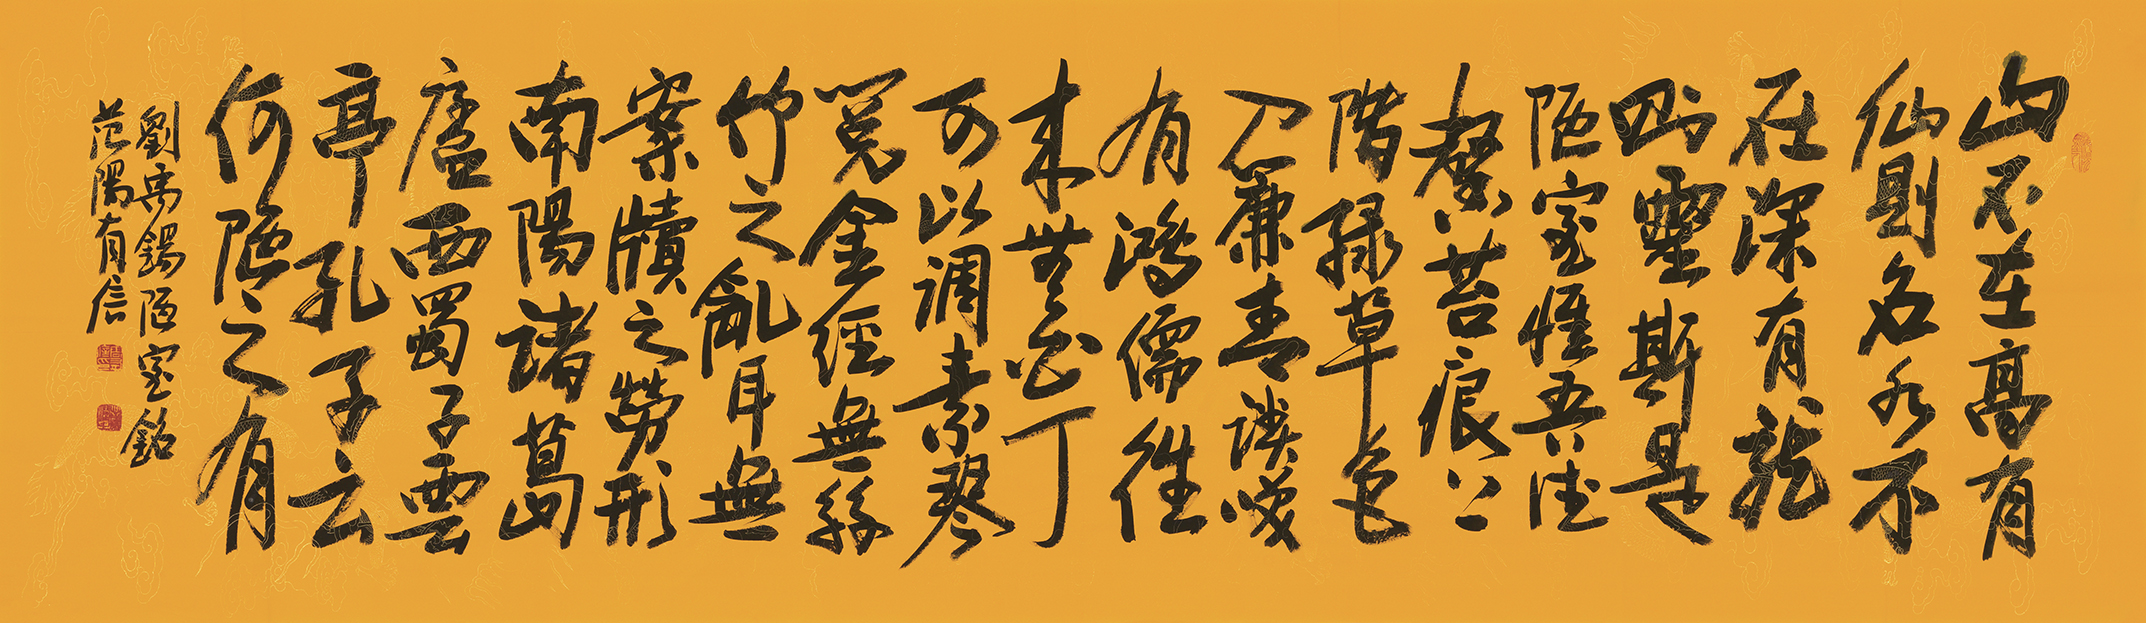 山不在高有
仙則名水不
在深有龍
則靈斯是
陋室惟吾德
馨苔痕上
階綠草色
入簾青談笑
有鴻儒往
来無白丁
可以調素琴
閱金經無絲
竹之亂耳無
案牘之勞形
南陽諸葛
廬西蜀子雲
亭孔子云
何陋之有
劉禹錫陋室銘
范陽有信